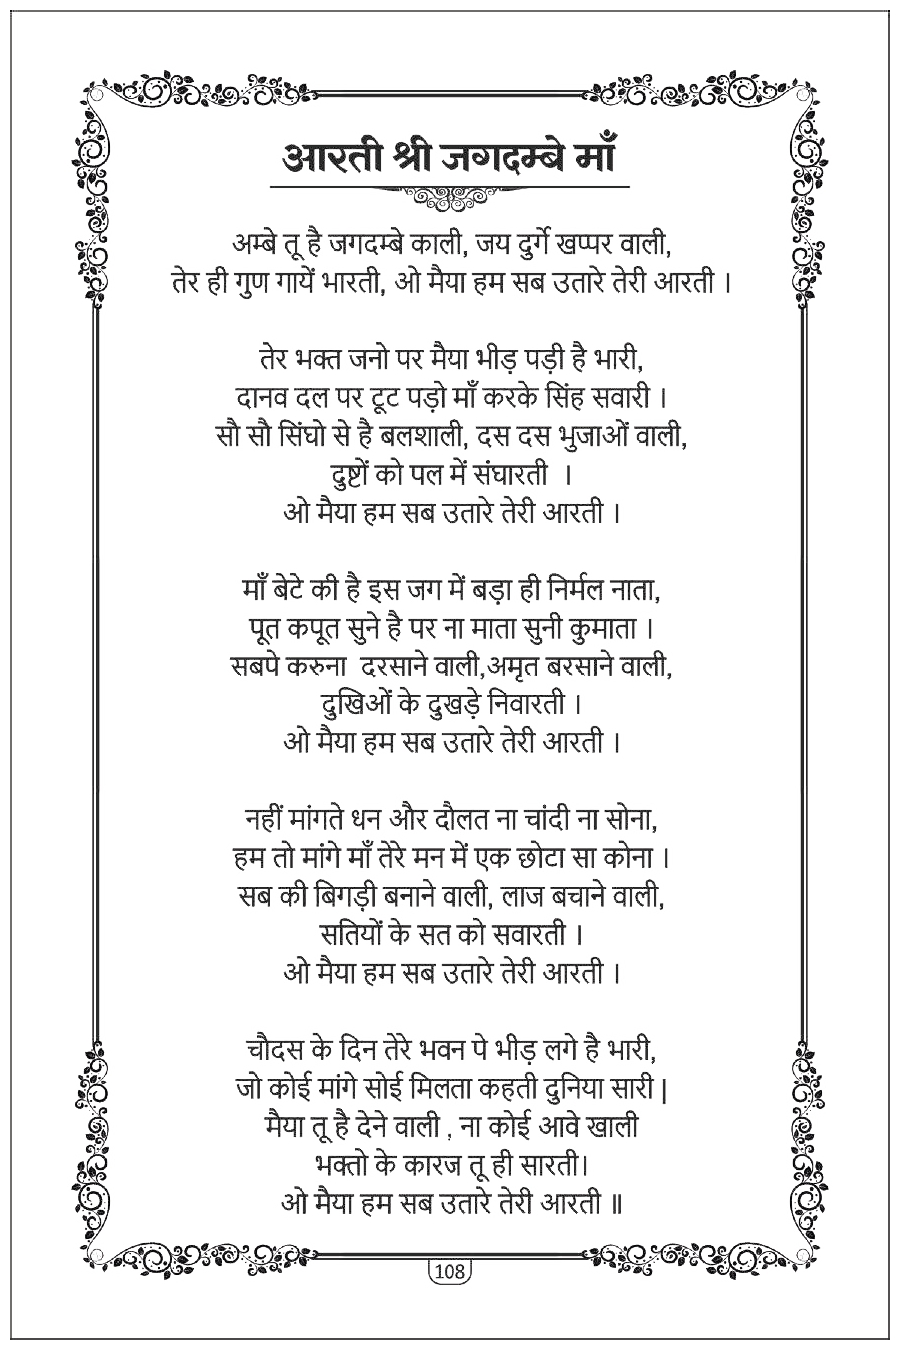 आरती श्री जगदम्बे माँ
अम्बे तू है जगदम्बे काली, जय दुर्गे खप्पर वाली,
तेर ही गुण गायें भारती, ओ मैया हम सब उतारे तेरी आरती ।
तेर भक्त जनो पर मैया भीड़ पड़ी है भारी,
दानव दल पर टूट पड़ो माँ करके सिंह सवारी ।
सौ सौ सिंघो से है बलशाली, दस दस भुजाओं वाली,
दुष्टों को पल में संघारती ।
ओ मैया हम सब उतारे तेरी आरती ।
माँ बेटे की है इस जग में बड़ा ही निर्मल नाता,
पूत कपूत सुने है पर ना माता सुनी कुमाता ।
सबपे करुना दरसाने वाली,अमृत बरसाने वाली,
दुखिओं के दुखड़े निवारती ।
ओ मैया हम सब उतारे तेरी आरती ।
नहीं मांगते धन और दौलत ना चांदी ना सोना,
हम तो मांगे माँ तेरे मन में एक छोटा सा कोना ।
सब की बिगड़ी बनाने वाली, लाज बचाने वाली,
सतियों के सत को सवारती ।
ओ मैया हम सब उतारे तेरी आरती ।
चौदस के दिन तेरे भवन पे भीड़ लगे है भारी,
जो कोई मांगे सोई मिलता कहती दुनिया सारी|
मैया तू है देने वाली , ना कोई आवे खाली
भक्तो के कारज तू ही सारती।
ओ मैया हम सब उतारे तेरी आरती ॥
108